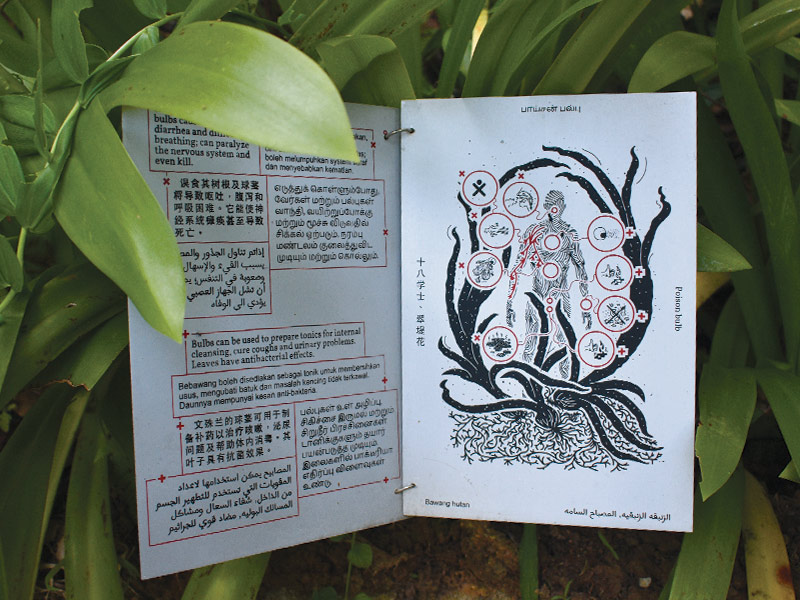 bulbs
diarrhea and
breathing; can paralyze
the nervous system and
even kill.
boleh melumpuhkan system
dan menyebabkan kematian.
误食其树根及球茎
将导致呕吐，腹泻和
呼吸困难。它能使神
经系统瘫痪甚至导致
死亡。
எடுத்துக் கொள்ளும்போது,
வேர்கள் மற்றும் பல்புகள்
வாந்தி, வயிற்றுப்போக்கு
மற்றும் மூச்சு விடுவதில்
சிக்கல் ஏற்படும். நரம்பு
மண்டலம் குலைத்துவிட
முடியும் மற்றும் கொல்லும்.
إذا تم تناول الجذور والمص
يسبب القيء والإسهال
وصعوبة في التنفس؛ يم
أن تشل الجهاز العصبي
يؤدي الى الوفاه
Bulbs can be used to prepare tonics for internal
cleansing, cure coughs and urinary problems.
Leaves have antibacterial effects.
Bebawang boleh disediakan sebagai tonik untuk membersihkan
usus, mengubati batuk dan masalah kencing tidak terkawal.
Daunnya mempunyai kesan anti-bakteria.
文珠兰的球茎可用于制
备补药以治疗咳嗽，泌尿
问题及帮助体内消毒。其
叶子具有抗菌效果。
பல்புகள் உள் அழிப்பு,
சிகிச்சை இருமல் மற்றும்
சிறுநீர் பிரச்சினைகள்
டானிக்குகளும் தயார்
பயன்படுத்த முடியும்.
இலைகளில் பாக்டீரியா
எதிர்ப்பு விளைவுகள்
உண்டு.
المصابيح يمكن استخدامها لاعداد
المقويات التي تستخدم لتطهير الجسم
من الداخل، شفاء السعال ومشاكل
المسالك البوليه، مضاد قوي للجراثيم
பாய்சன் பல்பு
十八学士、翠堤花
Poison bulb
Bawang hutan
الزنبقه الزنبقيه، المصباح السامه